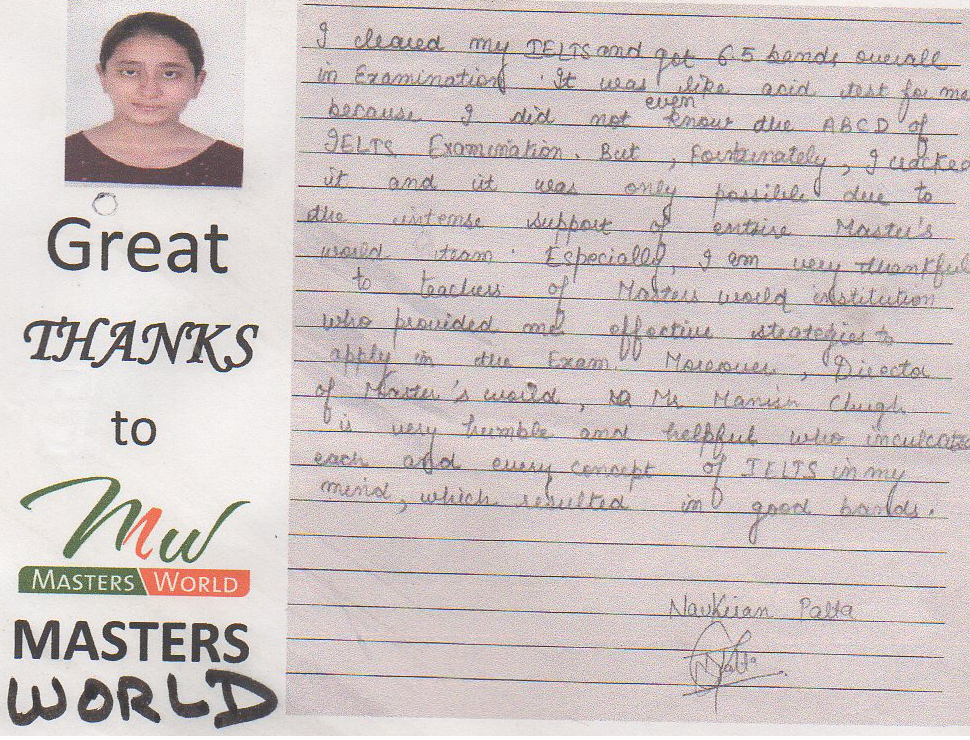 Great
THANKS
to
MW
MASTERS WORLD
MASTERS
WORLD
I cleared my IELTS and got 6.5 bands overall
in Examination. It was like acid test for me
because I did not even know the ABCD of
IELTS Examination. But, Fortunately, I cracked
it and it was only possible due to
the intense support of entire Master's
world team. Especially, I am very thankful
to teachers of Masters world institution
who provided me effective strategies to
apply in the Exam. Moreover, Director
of Master's world, Mr Manish Chugh
is very humble and helpful who inculcates
each and every concept of IELTS in my
mind, which resulted in good bands.
Navkiran Palta
NPalta